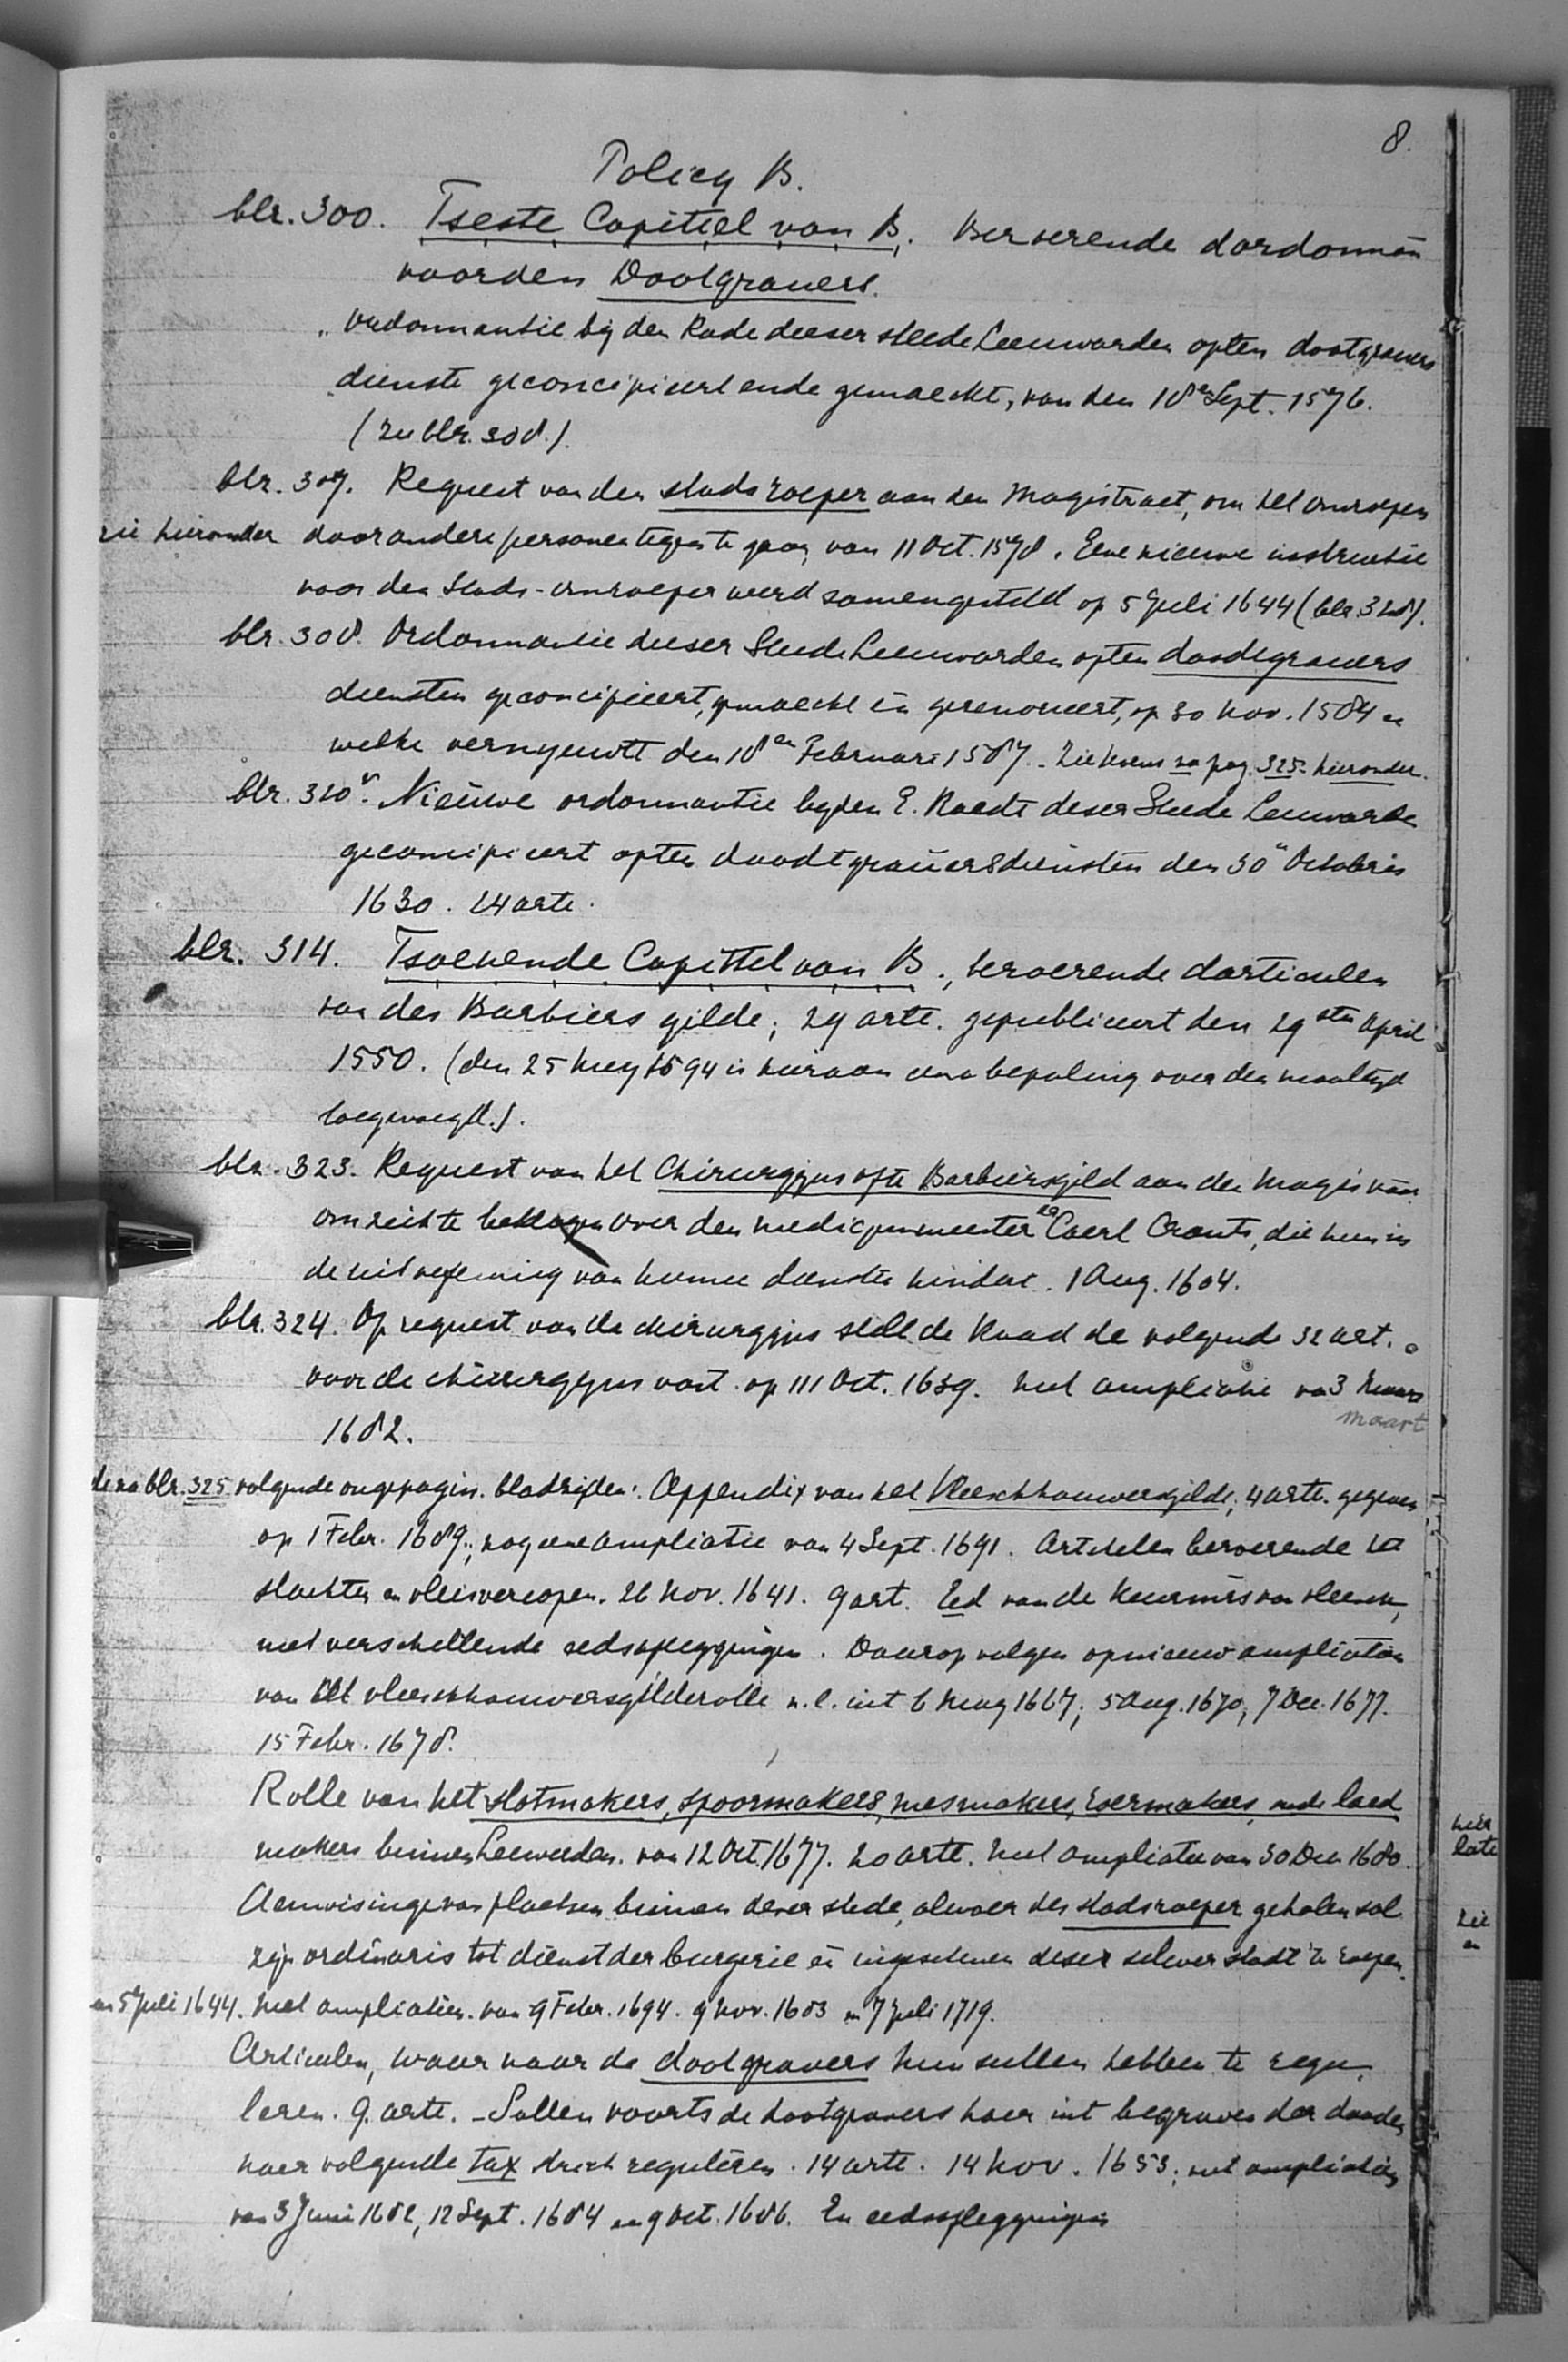 8.
Policy B.
blz. 300. Tseste Capittel van B. Beroerende dordonnan
voorden Dootgravers.
„ Ordonnantie bij den Rade deeser stede Leeuwarden opten dootgravers
dienste geconcipieert ende gemaeckt, van den 18en Sept. 1576.
(zie blz. 308.)
blz. 307. Request van den stadsroeper aan den Magistraet, om het omroepen
zie hieronder door andere personen tegen te gaan, van 11 Oct. 1578. Eene nieuwe instructie
voor den Stads-omroeper werd samengesteld op 5 Juli 1644 (blz. 328).
blz. 308. Ordonnantie deeser Stede Leeuwarden opten doodegravers
diensten geconcipieert, gemaeckt en gerenoveert, op 30 Nov. 1584 en
welke vernyeuwt den 18en Februari 1587. Zie tevens na pag. 325 hieronder.
blz. 310v. Nieuwe ordonnantie by den E. Raedt deser Stede Leeuwarden
geconcipieert opten doodtgraversdiensten den 30en Octobris
1630. 14 arte.
blz. 314. Tsoevende Capittel van B., beroerende darticulen
van des Barbiers gilde; 29 arte. gepubliceert den 29sten April
1550. (den 25 Mey 1594 is hieraan eene bepaling over den maaltyd
toegevoegd.).
blz. 323. Request van het Chirurgyns ofte Barbiersgild aan de Magis van
om zich te beklagen over den medicynmeester Caerl Crants, die hen in
de uitoefening van hunne diensten hindert. 1 Aug. 1604.
blz. 324. Op request van de chirurgyns stelt de Raad de volgende 32 art.
voor de chirurgyns vast op 11 Oct. 1639. Met ampliatie van 3 Maart
maart
1682.
de na blz. 325 volgende ongepagin. bladzijden: Appendix van het Vleeschhouwersgilde, 4 arte. gegeven
op 1 Febr. 1689.; nog eene ampliatie van 4 Sept. 1691. Artikelen beroerende het
slachten en vleisvercopen. 26 Nov. 1641. 9 art. Eed van de Keurmrs van vleesch,
met verschillende eedsafleggingen. Daarop volgen opnieuw ampliatien
van het vleeschhouwersgilderolle n.l. uit 6 Mey 1667, 5 Aug. 1670, 7 Dec. 1677.
15 Febr. 1678.
Rolle van het slotmakers, spoormakers, mesmakers, roermakers, ende laed
makers binnen Leeuwarden. van 12 Oct. 1677. 20 arte. Met ampliatie van 30 Dec 1680.
Aenwisinge van plaetsen binnen deser stede, alwaer des stadsroeper geholen sal
zijn ordinaris tot dienst der burgerie en ingesetenen deser selver stadt te roepen.
van 5 Juli 1644. Met ampliatien van 9 Febr. 1694. 9 Nov. 1683 en 7 Juli 1719.
Articulen, waar naar de dootgravers hun sullen hebben te regu-
leren. 9 arte. - Sullen voorts de dootgravers haer int begraven der dooden
naer volgende tax reguleren. 14 arte. 14 Nov. 1653, met ampliatien
van 3 Juni 1682, 12 Sept. 1684 en 9 Oct. 1686. En eedsafleggingen
hier
late
zie
en